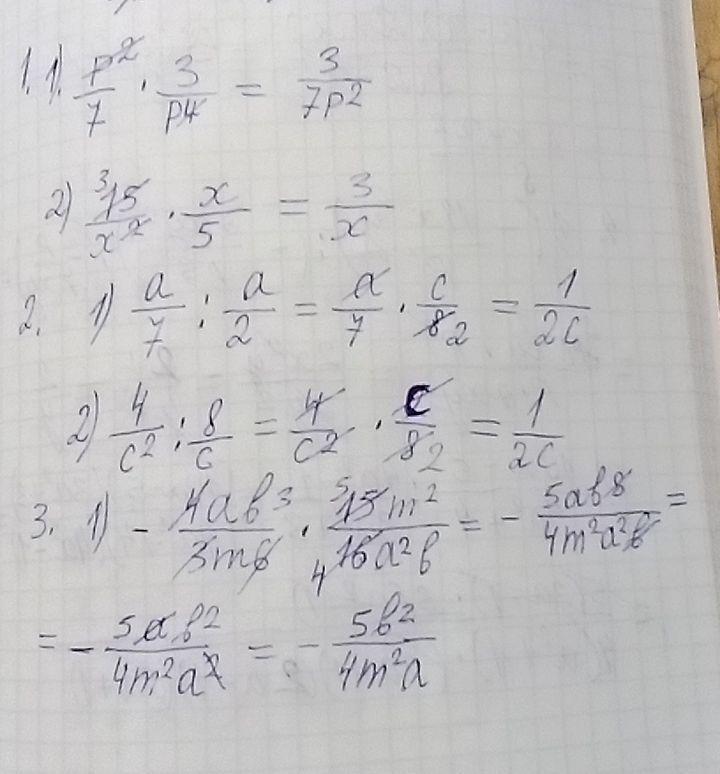 1. 1) p²/7 · 3/p4 = 3/7p²
2) ³15/x² · x/5 = 3/x
2. 1) a/7 : a/2 = a/7 · c/8 2 = 1/2c
2) 4/c² : 8/c = 4/c² · c/8 2 = 1/2c
3. 1) - 4ab³/3m6 · ⁵15m²/4 16a²b = - 5ab8/4m²a²b =
= - 5ab²/4m²a² = - 5b²/4m²a